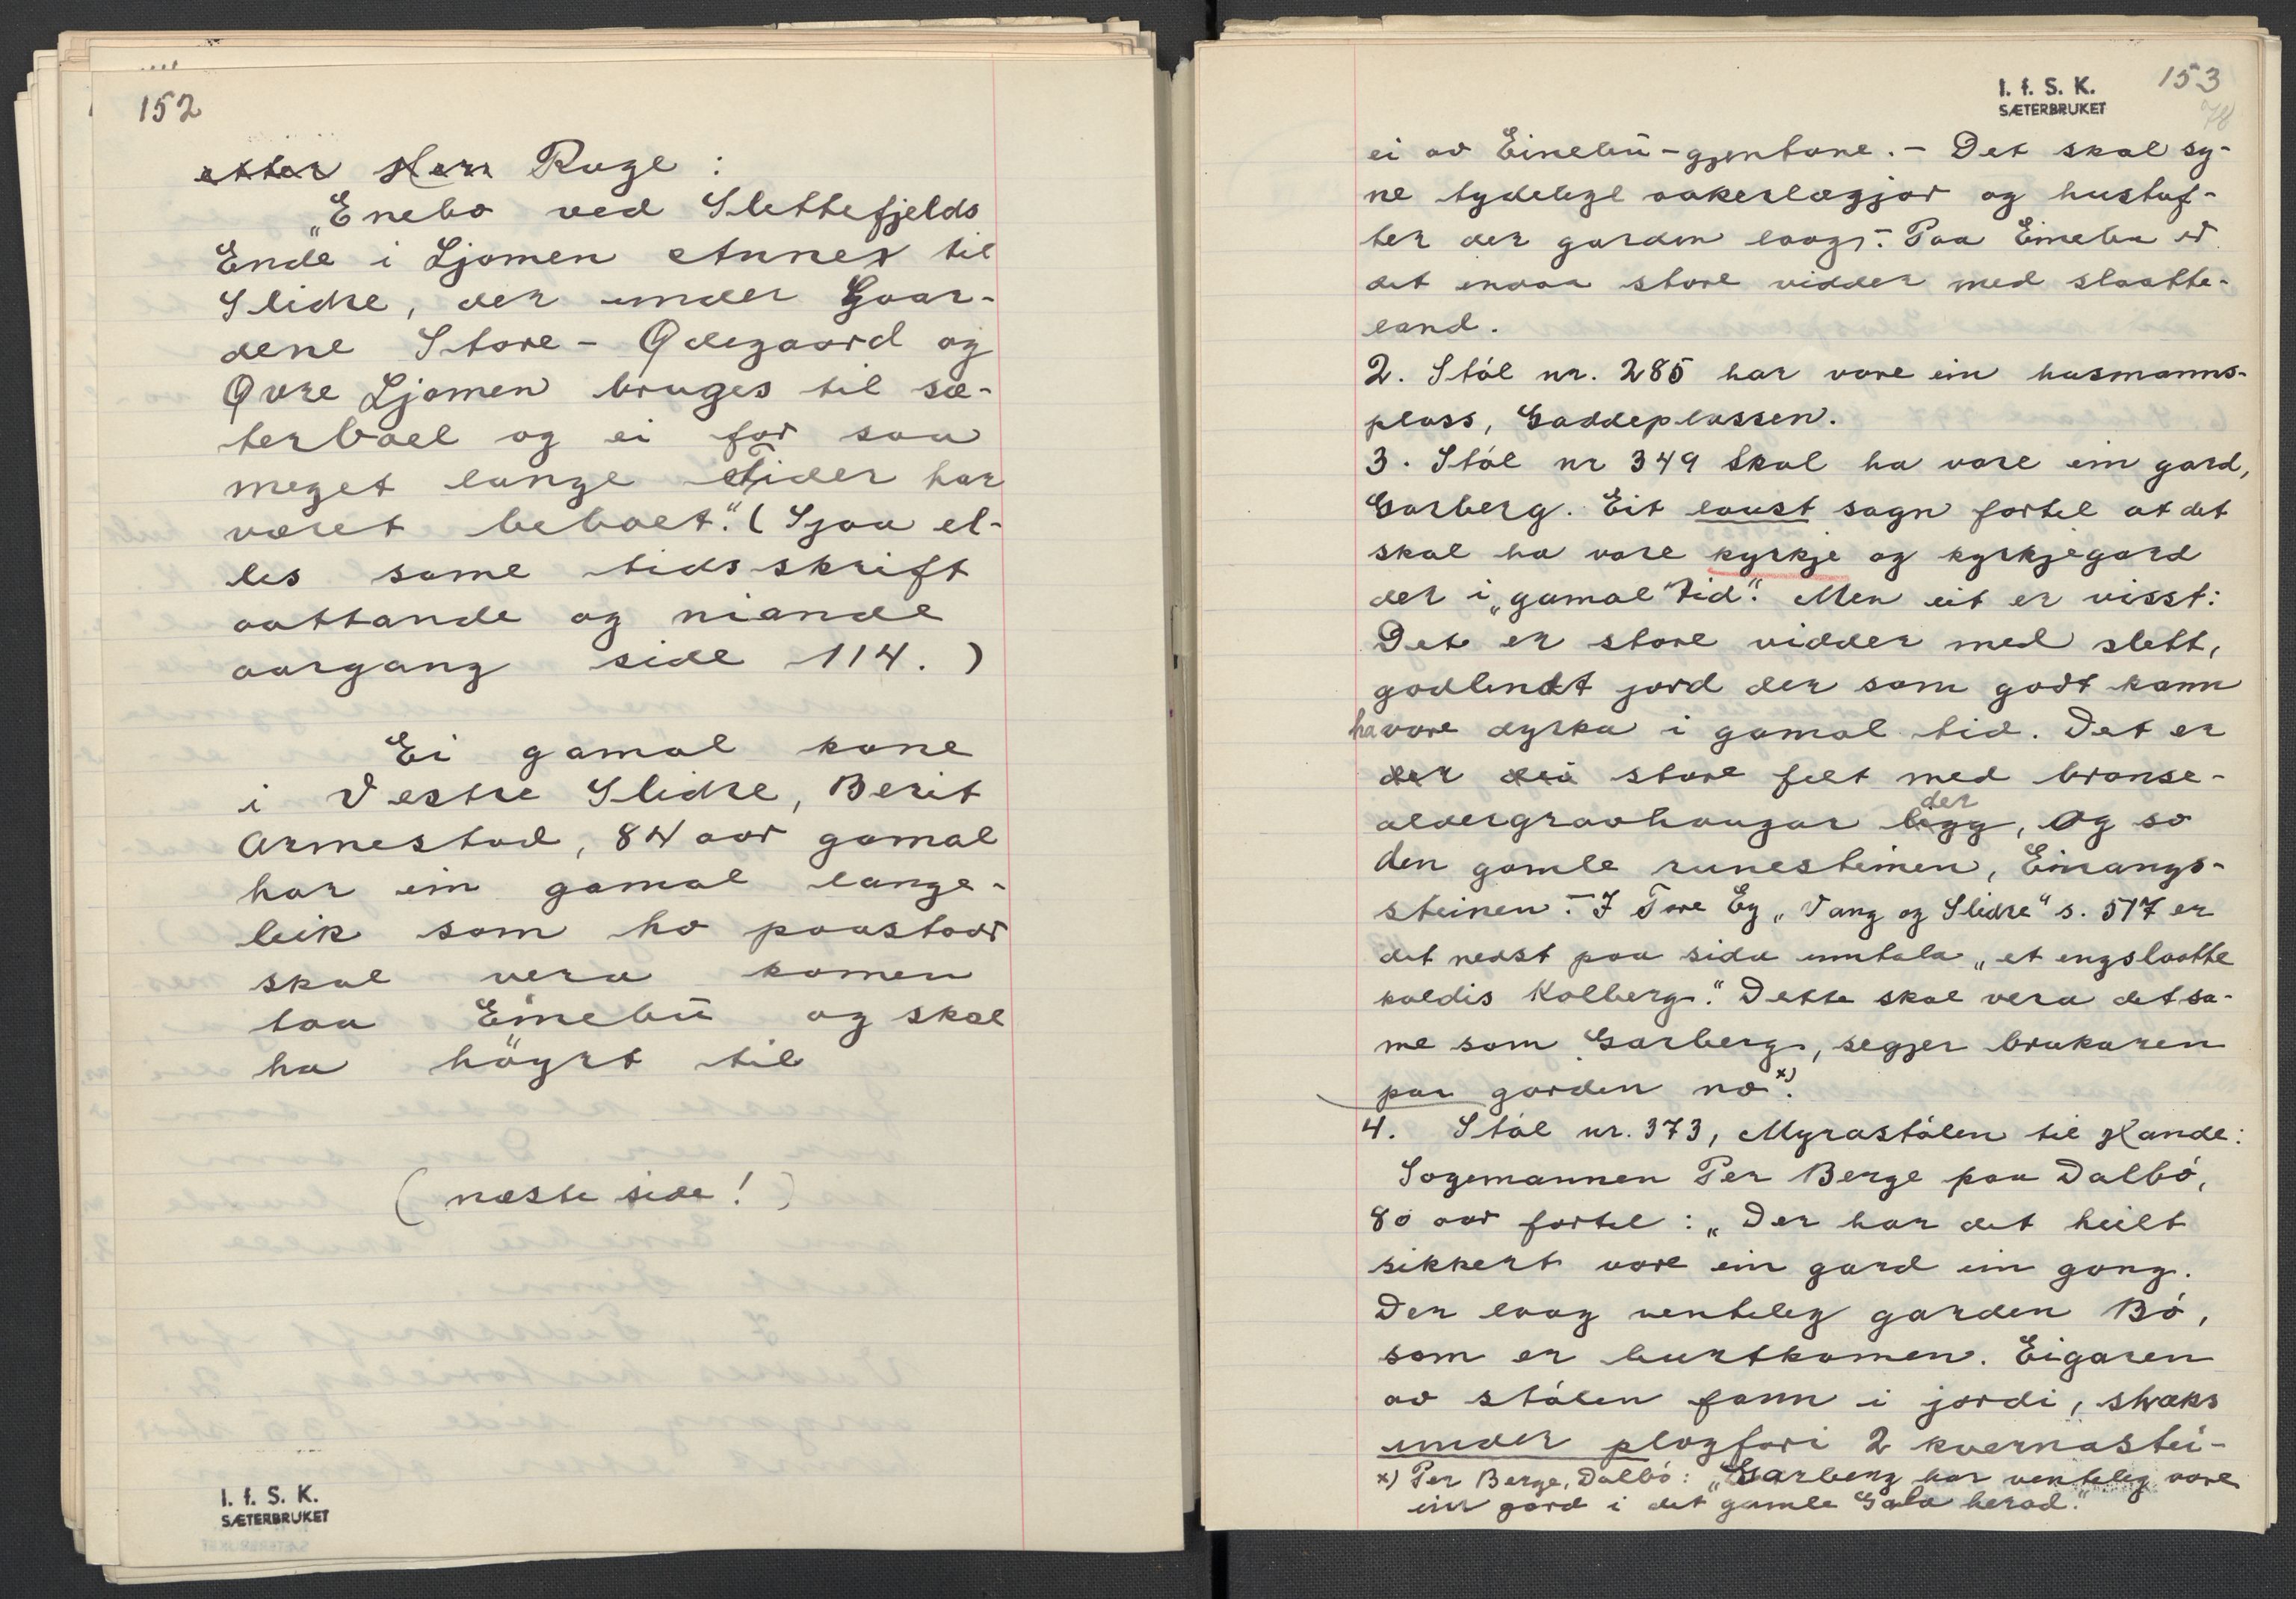 152
etter Herr Ruge :
„Enebo ved Slettefjelds
Ende i Ljomen Annex til
Slidre, der under Gaar-
dene Store - Ødegaard og
Øvre Ljomen bruges til sæ-
terboel og ei for saa
meget lange Tider har
været beboet." (Sjaa el-
les same tidsskrift
aattande og niande
aargang side 114. )
Ei gamal kone
i Vestre Slidre, Berit
Ormestad, 84 aar gamal
har ein gamal lange-
leik som ho paastaar
skal vera komen
taa Einebu og skal
ha høyrt til
(næste side!)
I. f. S. K.
SÆTERBRUKET
I. f. S. K.
SÆTERBRUKET
153
78
ei av Einebu-gjentone. - Det skal sy-
ne tydelege aakerlægjor og hustuf-
ter der garden laag. - Paa Einebu er
det endaa store vidder med slaatte-
land.
2. Stól nr. 285 har vore ein husmanns-
plass, Gaddeplassen.
3. Stól nr 349 skal ha vore ein gard,
Garberg. Eit laust sogn fortel at det
skal ha vore kyrkje og kyrkjegard
der i „gamal tid". Men eit er visst:
Det er store vidder med slett,
godlendt jord der som godt kann
ha vore dyrka i gamal tid. Det er
der dei store felt med bronse-
aldergravhaugar ligg, der og so
den gamle runesteinen, Einangs-
steinen. - I Tore Ey „Vang og Slidre" s. 517 er
det nedst paa sida umtala „et engslaatte
kaldis Kolberg." Dette skal vera det sa-
me som Garberg, segjer brukaren
paa garden no x).
4. Stól nr. 373, Myrastólen til Hande:
Sogemannen Per Berge paa Dalbö,
80 aar fortel : „Der har det heilt
sikkert vore ein gard ein gong.
Der laag venteleg garden Bö,
som er burtkomen. Eigaren
av stólen fann i jordi, straks
under plogfori 2 kvernastei-
x) Per Berge, Dalbö: „Garberg har venteleg vore
ein gard i det gamle Gala herad."